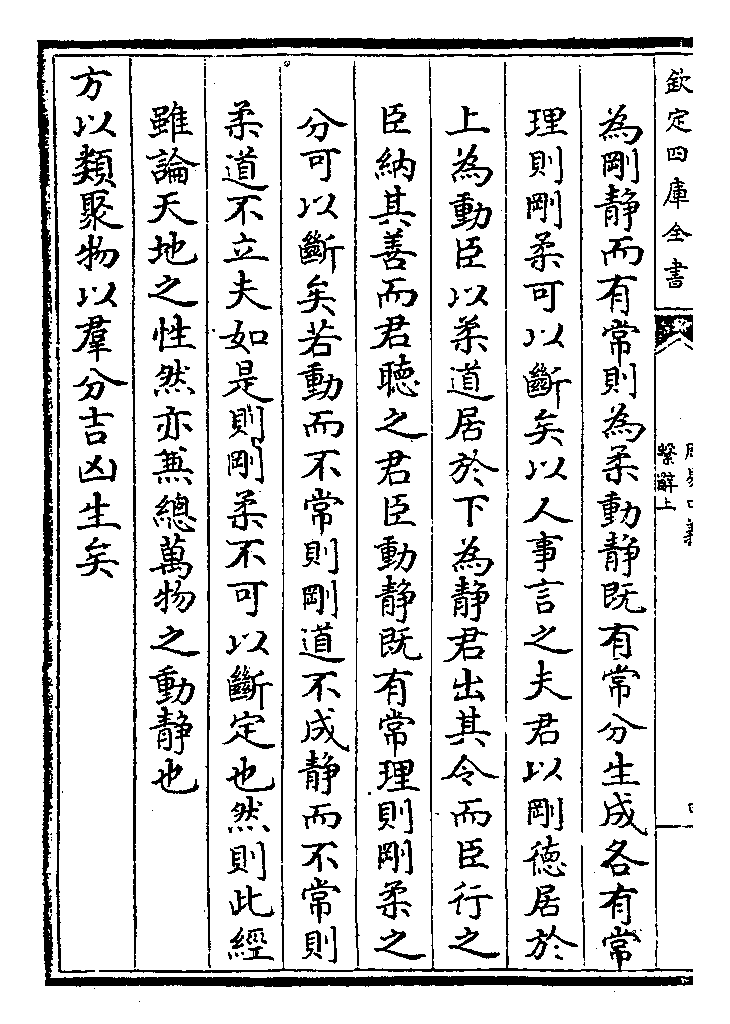 欽定四庫全書
繫辭上
為剛静而有常則為柔動静既有常分生成各有常
理則剛柔可以斷矣以人事言之夫君以剛德居於
上為動臣以柔道居於下為静君出其令而臣行之
臣納其善而君聽之君臣動静既有常理則剛柔之
分可以斷矣若動而不常則剛道不成静而不常則
柔道不立夫如是則剛柔不可以斷定也然則此經
雖論天地之性然亦兼總萬物之動静也
方以類聚物以羣分吉凶生矣